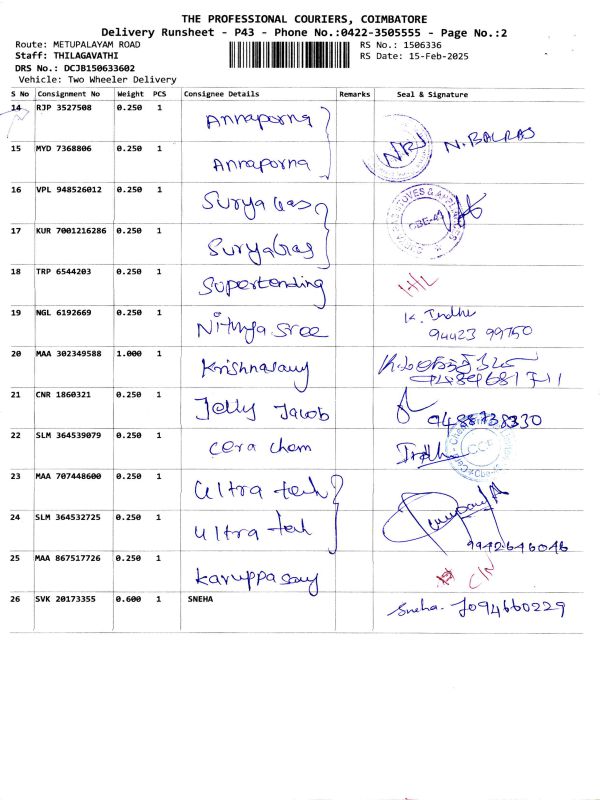 THE PROFESSIONAL COURIERS, COIMBATORE
Delivery Runsheet - P43 - Phone No.:0422-3505555 - Page No.:2
Route: METUPALAYAM ROAD RS No.: 1506336
Staff: THILAGAVATHI RS Date: 15-Feb-2025
DRS No.: DCJB150633602
Vehicle: Two Wheeler Delivery
S No Consignment No Weight PCS Consignee Details Remarks Seal & Signature
14 RJP 3527508 0.250 1 Annaporna
15 MYD 7368806 0.250 1 Annaporna NRJ N. BALRAJ
16 VPL 948526012 0.250 1 Surya Gas CBE-41
17 KUR 7001216286 0.250 1 Surya Gas
18 TRP 6544203 0.250 1 Supertending H/L
19 NGL 6192669 0.250 1 Nithya Sree K. Indhu
94423 99750
20 MAA 302349588 1.000 1 Krishnasamy
21 CNR 1860321 0.250 1 Jelly Jacob
22 SLM 364539079 0.250 1 Cera chem CCE
23 MAA 707448600 0.250 1 Ultra tech
24 SLM 364532725 0.250 1 Ultra tech
9942646046
25 MAA 867517726 0.250 1 Karuppasamy C/N
26 SVK 20173355 0.600 1 SNEHA Sneha. 7094660229